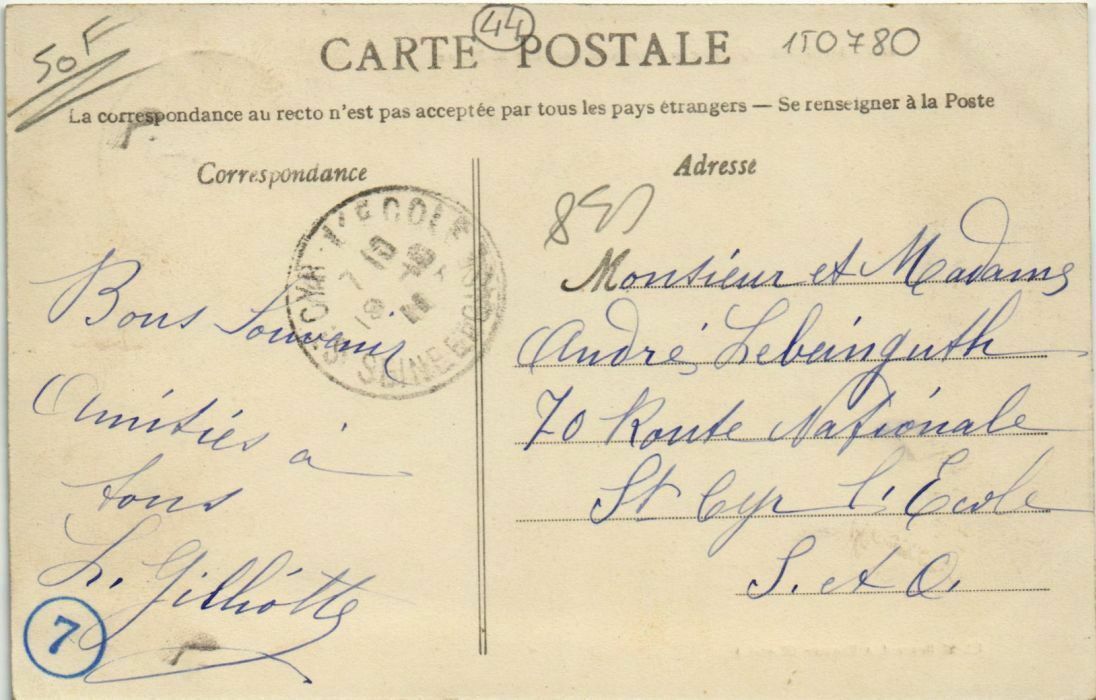 50F
44
150780
CARTE POSTALE
La correspondance au recto n'est pas acceptée par tous les pays étrangers — Se renseigner à la Poste
Correspondance
Bons Souvenirs
Amitiés à
tous
L. Gilliotte
7
ST CYR-L'ECOLE SEINE ET OISE
Adresse
Monsieur et Madame
André Lebeinguth
70 Route Nationale
St Cyr l'Ecole
S. et O.